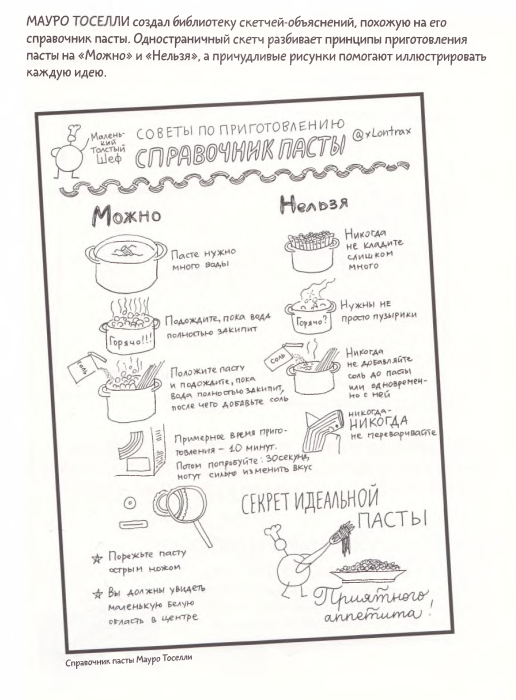 МАУРО ТОСЕЛЛИ создал библиотеку скетчей-объяснений, похожую на его
справочник пасты. Одностраничный скетч разбивает принципы приготовления
пасты на «Можно» и «Нельзя», а причудливые рисунки помогают иллюстрировать
каждую идею.
Малень-
кий
Толстый
Шеф
СОВЕТЫ ПО ПРИГОТОВЛЕНИЮ
СПРАВОЧНИК ПАСТЫ
@xLontrax
Можно
Нельзя
Пасте нужно
много воды
Никогда
не кладите
слишком
много
Горячо!!!
Подождите, пока вода
полностью закипит
Горячо?
Нужны не
просто пузырики
соль
Положите пасту
и подождите, пока
вода полностью закипит,
после чего добавьте соль
соль
Никогда
не добавляйте
соль до пасты
или одновремен-
но с ней
Примерное время приго-
товления – 10 минут.
Потом попробуйте: 30 секунд
могут сильно изменить вкус
никогда-
НИКОГДА
не переваривайте
Порежьте пасту
острым ножом
Вы должны увидеть
маленькую белую
область в центре
СЕКРЕТ ИДЕАЛЬНОЙ
ПАСТЫ
Приятного
аппетита!
Справочник пасты Мауро Тоселли